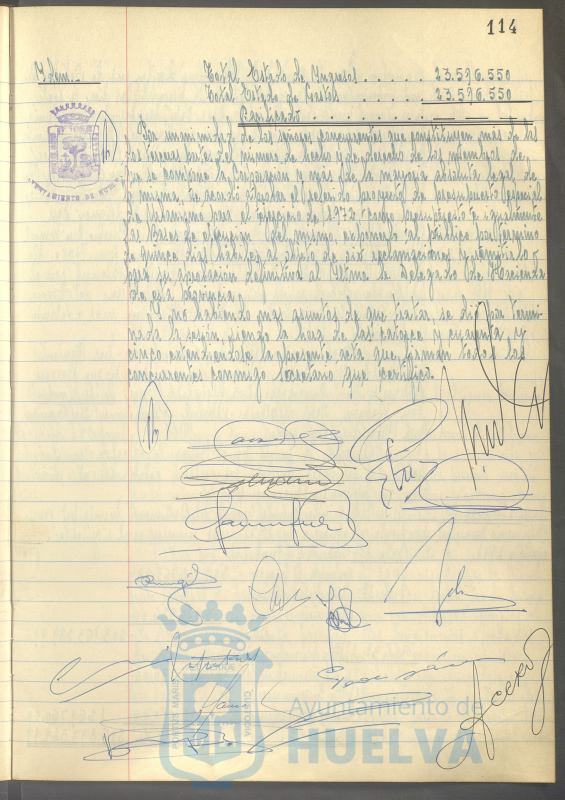 114
Idem.- Total Estado de Ingresos . . . . . 23.596.550
Total Estado de Gastos . . . . . 23.596.550
Por unanimidad de los señores concurrentes que constituyen más de las
dos terceras partes del número de hecho y de derecho de los miembros de
que se compone la Corporación y más de la mayoría absoluta legal, de
la misma, se acordó aprobar el referido proyecto de presupuesto especial
de Urbanismo para el ejercicio de 1972 e igualmente
las Bases de ejecución del mismo, exponerlo al público por término
de quince días hábiles al objeto de oir reclamaciones y
para su aprobación definitiva al Iltmo. Sr. Delegado de Hacienda
de esta provincia.
Y no habiendo mas asuntos de que tratar, se dió por termi-
nada la sesión, siendo la hora de las catorce y cuarenta y
cinco extendiendose la presente acta que firman todos los
concurrentes conmigo Secretario que certifico.
Ayuntamiento de
HUELVA